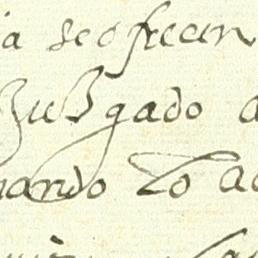 ia se ofrecen
Juzgado a
nando Lo ac